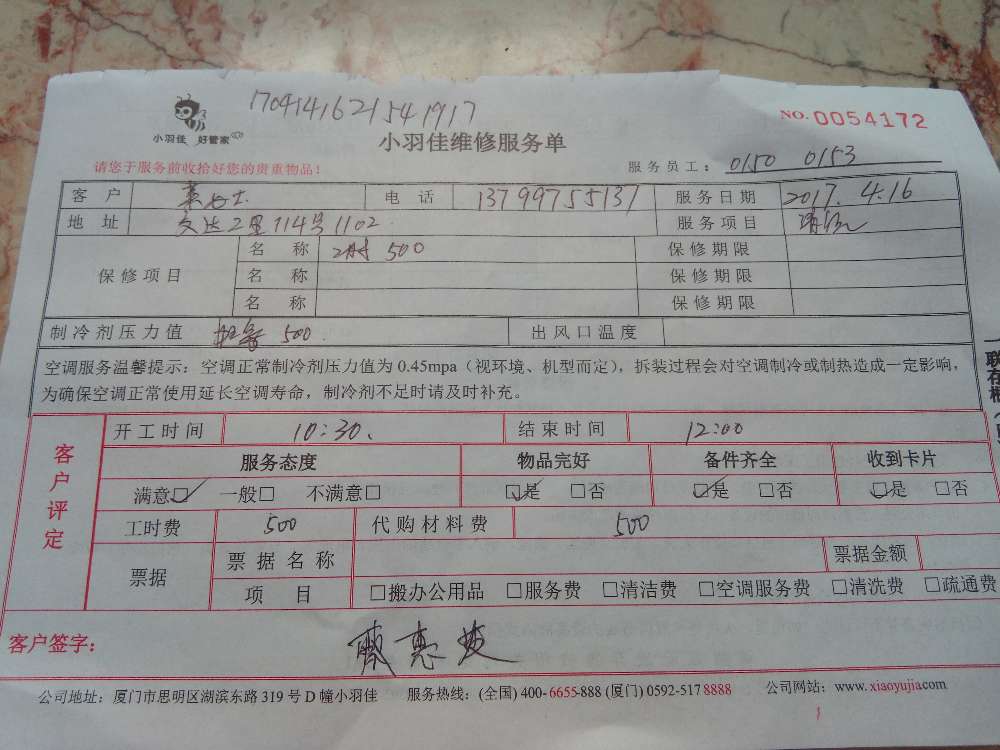 170414162154 1917
NO. 0054172
小羽佳 好管家
小羽佳维修服务单
请您于服务前收拾好您的贵重物品!
服务员工: 0150 0153
客户 女士 电话 13799755137 服务日期 2017.4.16
地址 文达二里114号1102 服务项目
保修项目 名称 500 保修期限
名称 保修期限
名称 保修期限
制冷剂压力值 500 出风口温度
空调服务温馨提示:空调正常制冷剂压力值为 0.45mpa(视环境、机型而定),拆装过程会对空调制冷或制热造成一定影响,
为确保空调正常使用延长空调寿命,制冷剂不足时请及时补充。
客户评定
开工时间 10:30 结束时间 12:00
服务态度 物品完好 备件齐全 收到卡片
满意☑ 一般□ 不满意□ ☑是 □否 ☑是 □否 ☑是 □否
工时费 500 代购材料费 500
票据 票据名称 票据金额
项目 □搬办公用品 □服务费 □清洁费 □空调服务费 □清洗费 □疏通费
客户签字:
公司地址:厦门市思明区湖滨东路 319 号 D 幢小羽佳 服务热线:(全国) 400-6655-888 (厦门) 0592-517 8888 公司网站:www.xiaoyujia.com